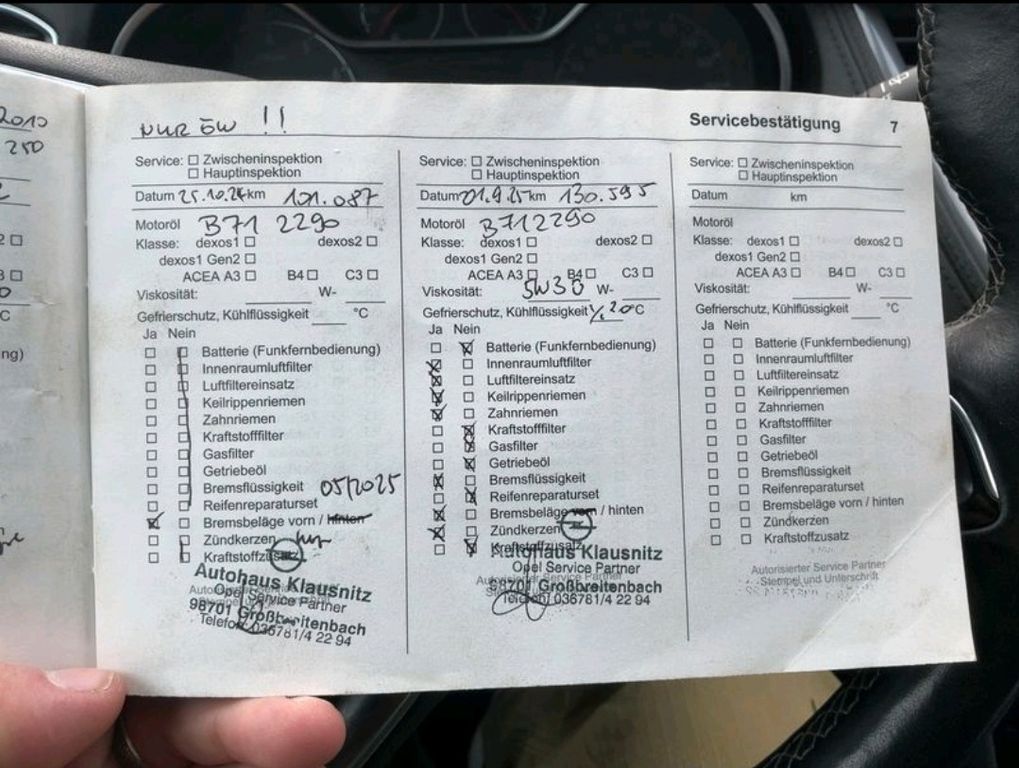 2010
250
NUR ÖW !!
Servicebestätigung 7
Service: Zwischeninspektion
Hauptinspektion
Datum 25.10.24 km 101.087
Motoröl B71 2290
Klasse: dexos1 dexos2
dexos1 Gen2
ACEA A3 B4 C3
Viskosität: W-
Gefrierschutz, Kühlflüssigkeit °C
Ja Nein
Batterie (Funkfernbedienung)
Innenraumluftfilter
Luftfiltereinsatz
Keilrippenriemen
Zahnriemen
Kraftstofffilter
Gasfilter
Getriebeöl
Bremsflüssigkeit 05/2025
Reifenreparaturset
Bremsbeläge vorn / hinten
Zündkerzen
Kraftstoffzusatz
Autohaus Klausnitz
Opel Service Partner
98701 Großbreitenbach
Telefon 036781/4 22 94
Service: Zwischeninspektion
Hauptinspektion
Datum 01.9.25 km 130.595
Motoröl B712290
Klasse: dexos1 dexos2
dexos1 Gen2
ACEA A3 B4 C3
Viskosität: 5W30 W-
Gefrierschutz, Kühlflüssigkeit 20 °C
Ja Nein
Batterie (Funkfernbedienung)
Innenraumluftfilter
Luftfiltereinsatz
Keilrippenriemen
Zahnriemen
Kraftstofffilter
Gasfilter
Getriebeöl
Bremsflüssigkeit
Reifenreparaturset
Bremsbeläge vorn / hinten
Zündkerzen
Kraftstoffzusatz
Autohaus Klausnitz
Opel Service Partner
Autorisierter Service Partner
98701 Großbreitenbach
Telefon 036781/4 22 94
Service: Zwischeninspektion
Hauptinspektion
Datum km
Motoröl
Klasse: dexos1 dexos2
dexos1 Gen2
ACEA A3 B4 C3
Viskosität: W-
Gefrierschutz, Kühlflüssigkeit °C
Ja Nein
Batterie (Funkfernbedienung)
Innenraumluftfilter
Luftfiltereinsatz
Keilrippenriemen
Zahnriemen
Kraftstofffilter
Gasfilter
Getriebeöl
Bremsflüssigkeit
Reifenreparaturset
Bremsbeläge vorn / hinten
Zündkerzen
Kraftstoffzusatz
Autorisierter Service Partner
Stempel und Unterschrift